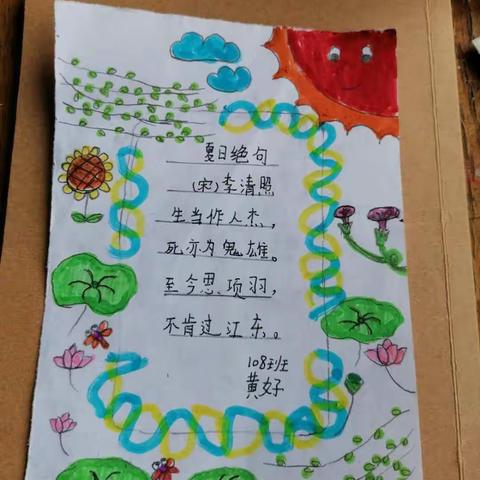 夏日绝句
(宋)李清照
生当作人杰，
死亦为鬼雄。
至今思项羽，
不肯过江东。
108班
黄好